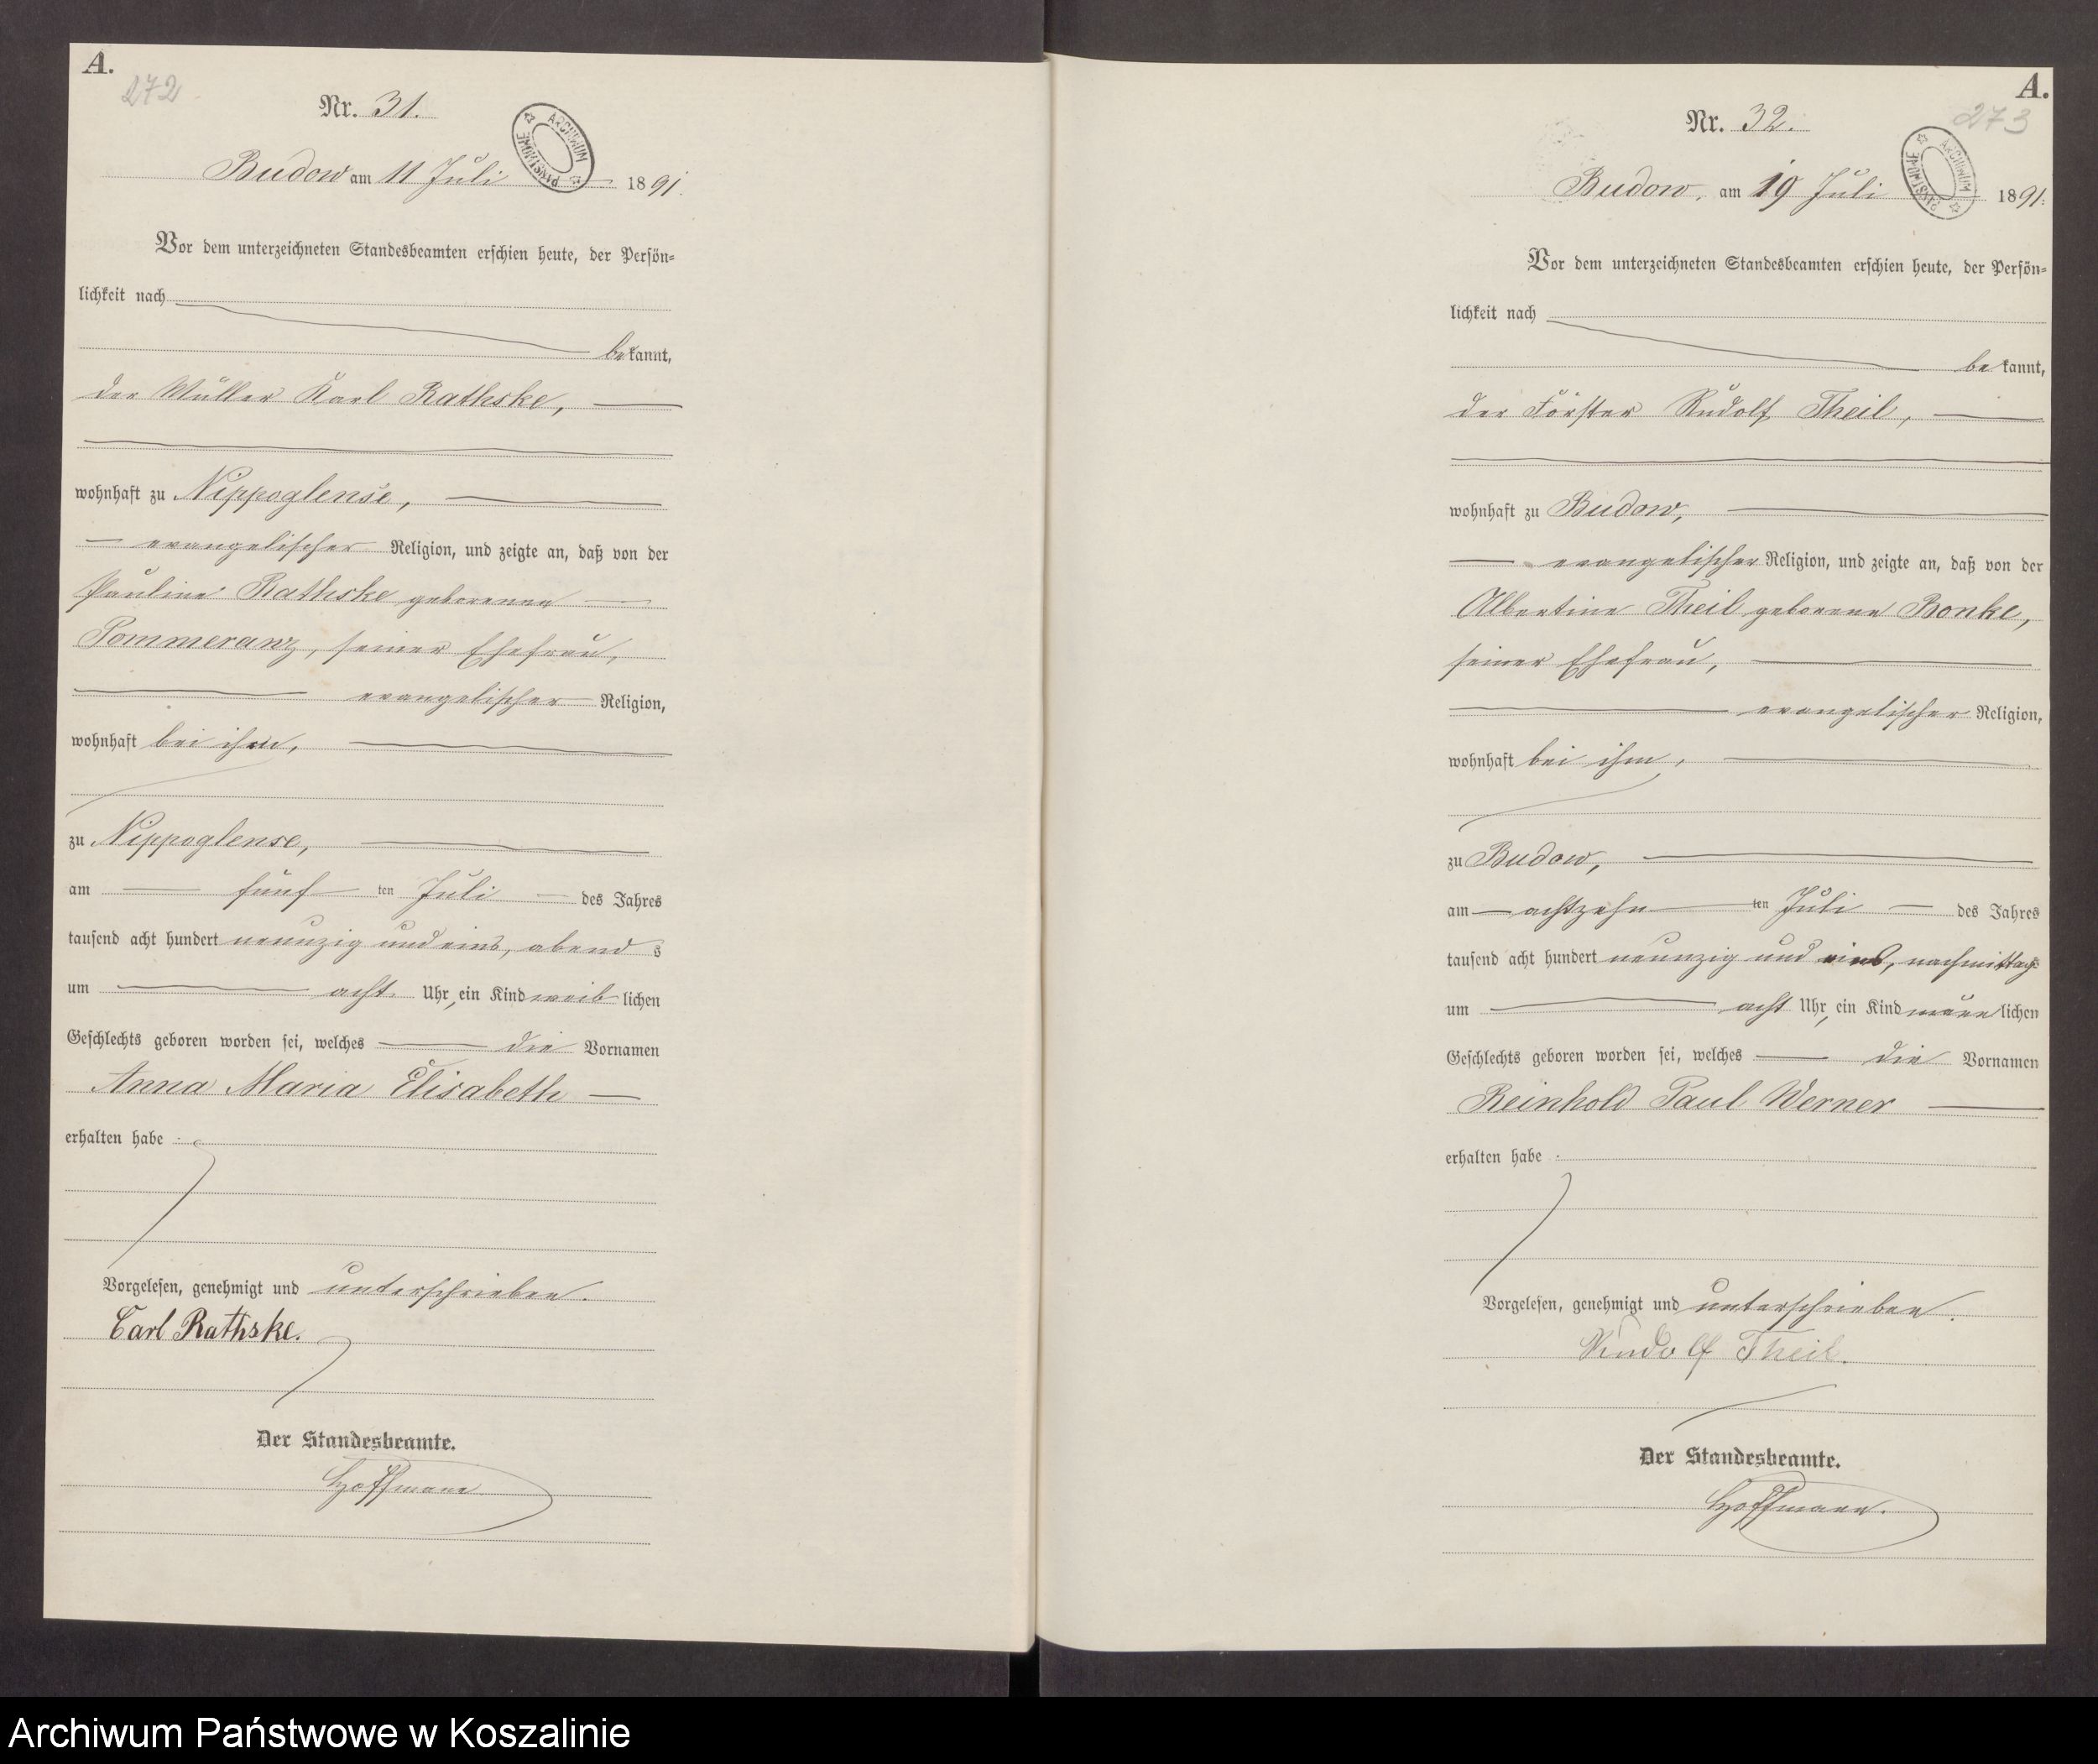 A.
272
Nr. 31.
ARCHIWUM PAŃSTWOWE
Budow am 11 Juli 1891.
Vor dem unterzeichneten Standesbeamten erschien heute, der Persön-
lichkeit nach
bekannt,
der Müller Karl Rathske,
wohnhaft zu Nippoglense,
evangelischer Religion, und zeigte an, daß von der
Pauline Rathske geborenen
Pommeranz, seiner Ehefrau,
evangelischer Religion,
wohnhaft bei ihm,
zu Nippoglense,
am fünf ten Juli des Jahres
tausend acht hundert neunzig und eins, abend s
um acht Uhr, ein Kind weib lichen
Geschlechts geboren worden sei, welches die Vornamen
Anna Maria Elisabeth
erhalten habe.
Vorgelesen, genehmigt und unterschrieben.
Carl Rathske.
Der Standesbeamte.
Hoffmann
A.
273
Nr. 32.
ARCHIWUM PAŃSTWOWE
Budow, am 19 Juli 1891.
Vor dem unterzeichneten Standesbeamten erschien heute, der Persön-
lichkeit nach
bekannt,
der Förster Rudolf Theil,
wohnhaft zu Budow,
evangelischer Religion, und zeigte an, daß von der
Albertine Theil geborene Bonke,
seiner Ehefrau,
evangelischer Religion,
wohnhaft bei ihm,
zu Budow,
am achtzehn ten Juli des Jahres
tausend acht hundert neunzig und eins, nachmittags
um acht Uhr, ein Kind männ lichen
Geschlechts geboren worden sei, welches die Vornamen
Reinhold Paul Werner
erhalten habe.
Vorgelesen, genehmigt und unterschrieben.
Rudolf Theil.
Der Standesbeamte.
Hoffmann.
Archiwum Państwowe w Koszalinie